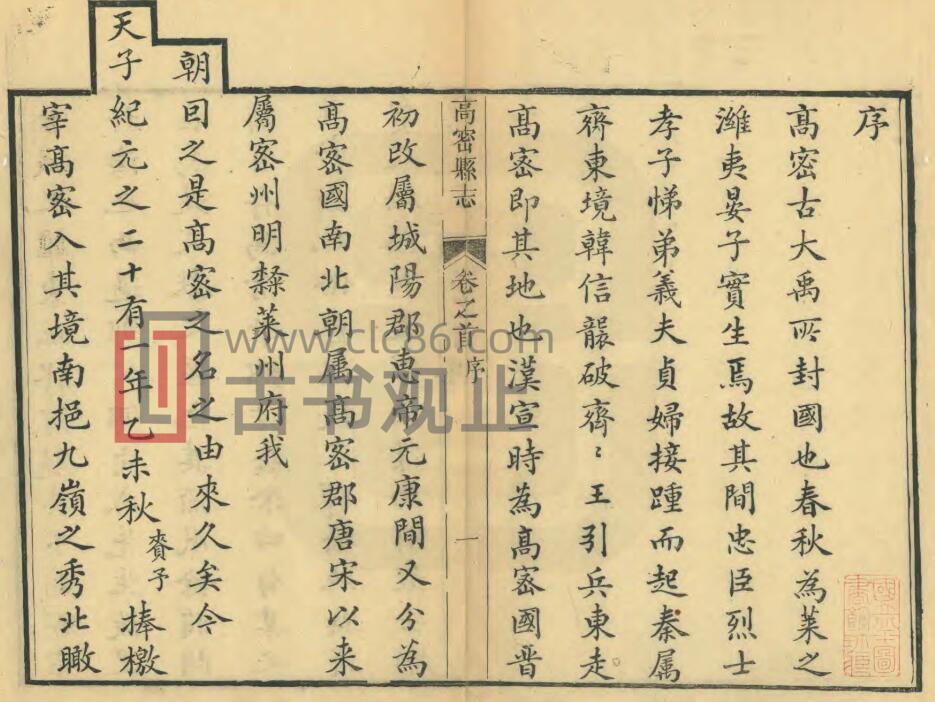 序
髙宻古大禹所封國也春秋為萊之
濰夷晏子實生焉故其間忠臣烈士
孝子悌弟義夫貞婦接踵而起秦属
齊東境韓信襲破齊〻王引兵東走
髙宻即其地也漢宣時為髙宻國晋
高密縣志 卷之首 序 一
初改屬城陽郡惠帝元康間又分為
髙宻國南北朝属髙宻郡唐宋以来
屬宻州明隸萊州府我
朝因之是髙宻之名之由來久矣今
天子紀元之二十有一年乙未秋賡予捧檄
宰髙宻入其境南挹九嶺之秀北瞰
www.clc86.com
古书观止